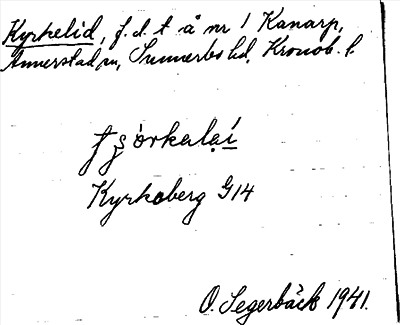 Kyrkelid, f. d. t å nr 1 Kanarp,
Annerstad sn, Sunnerbo hd, Kronob. l.
Kyrkoberg G14
O. Segerbäck 1941.